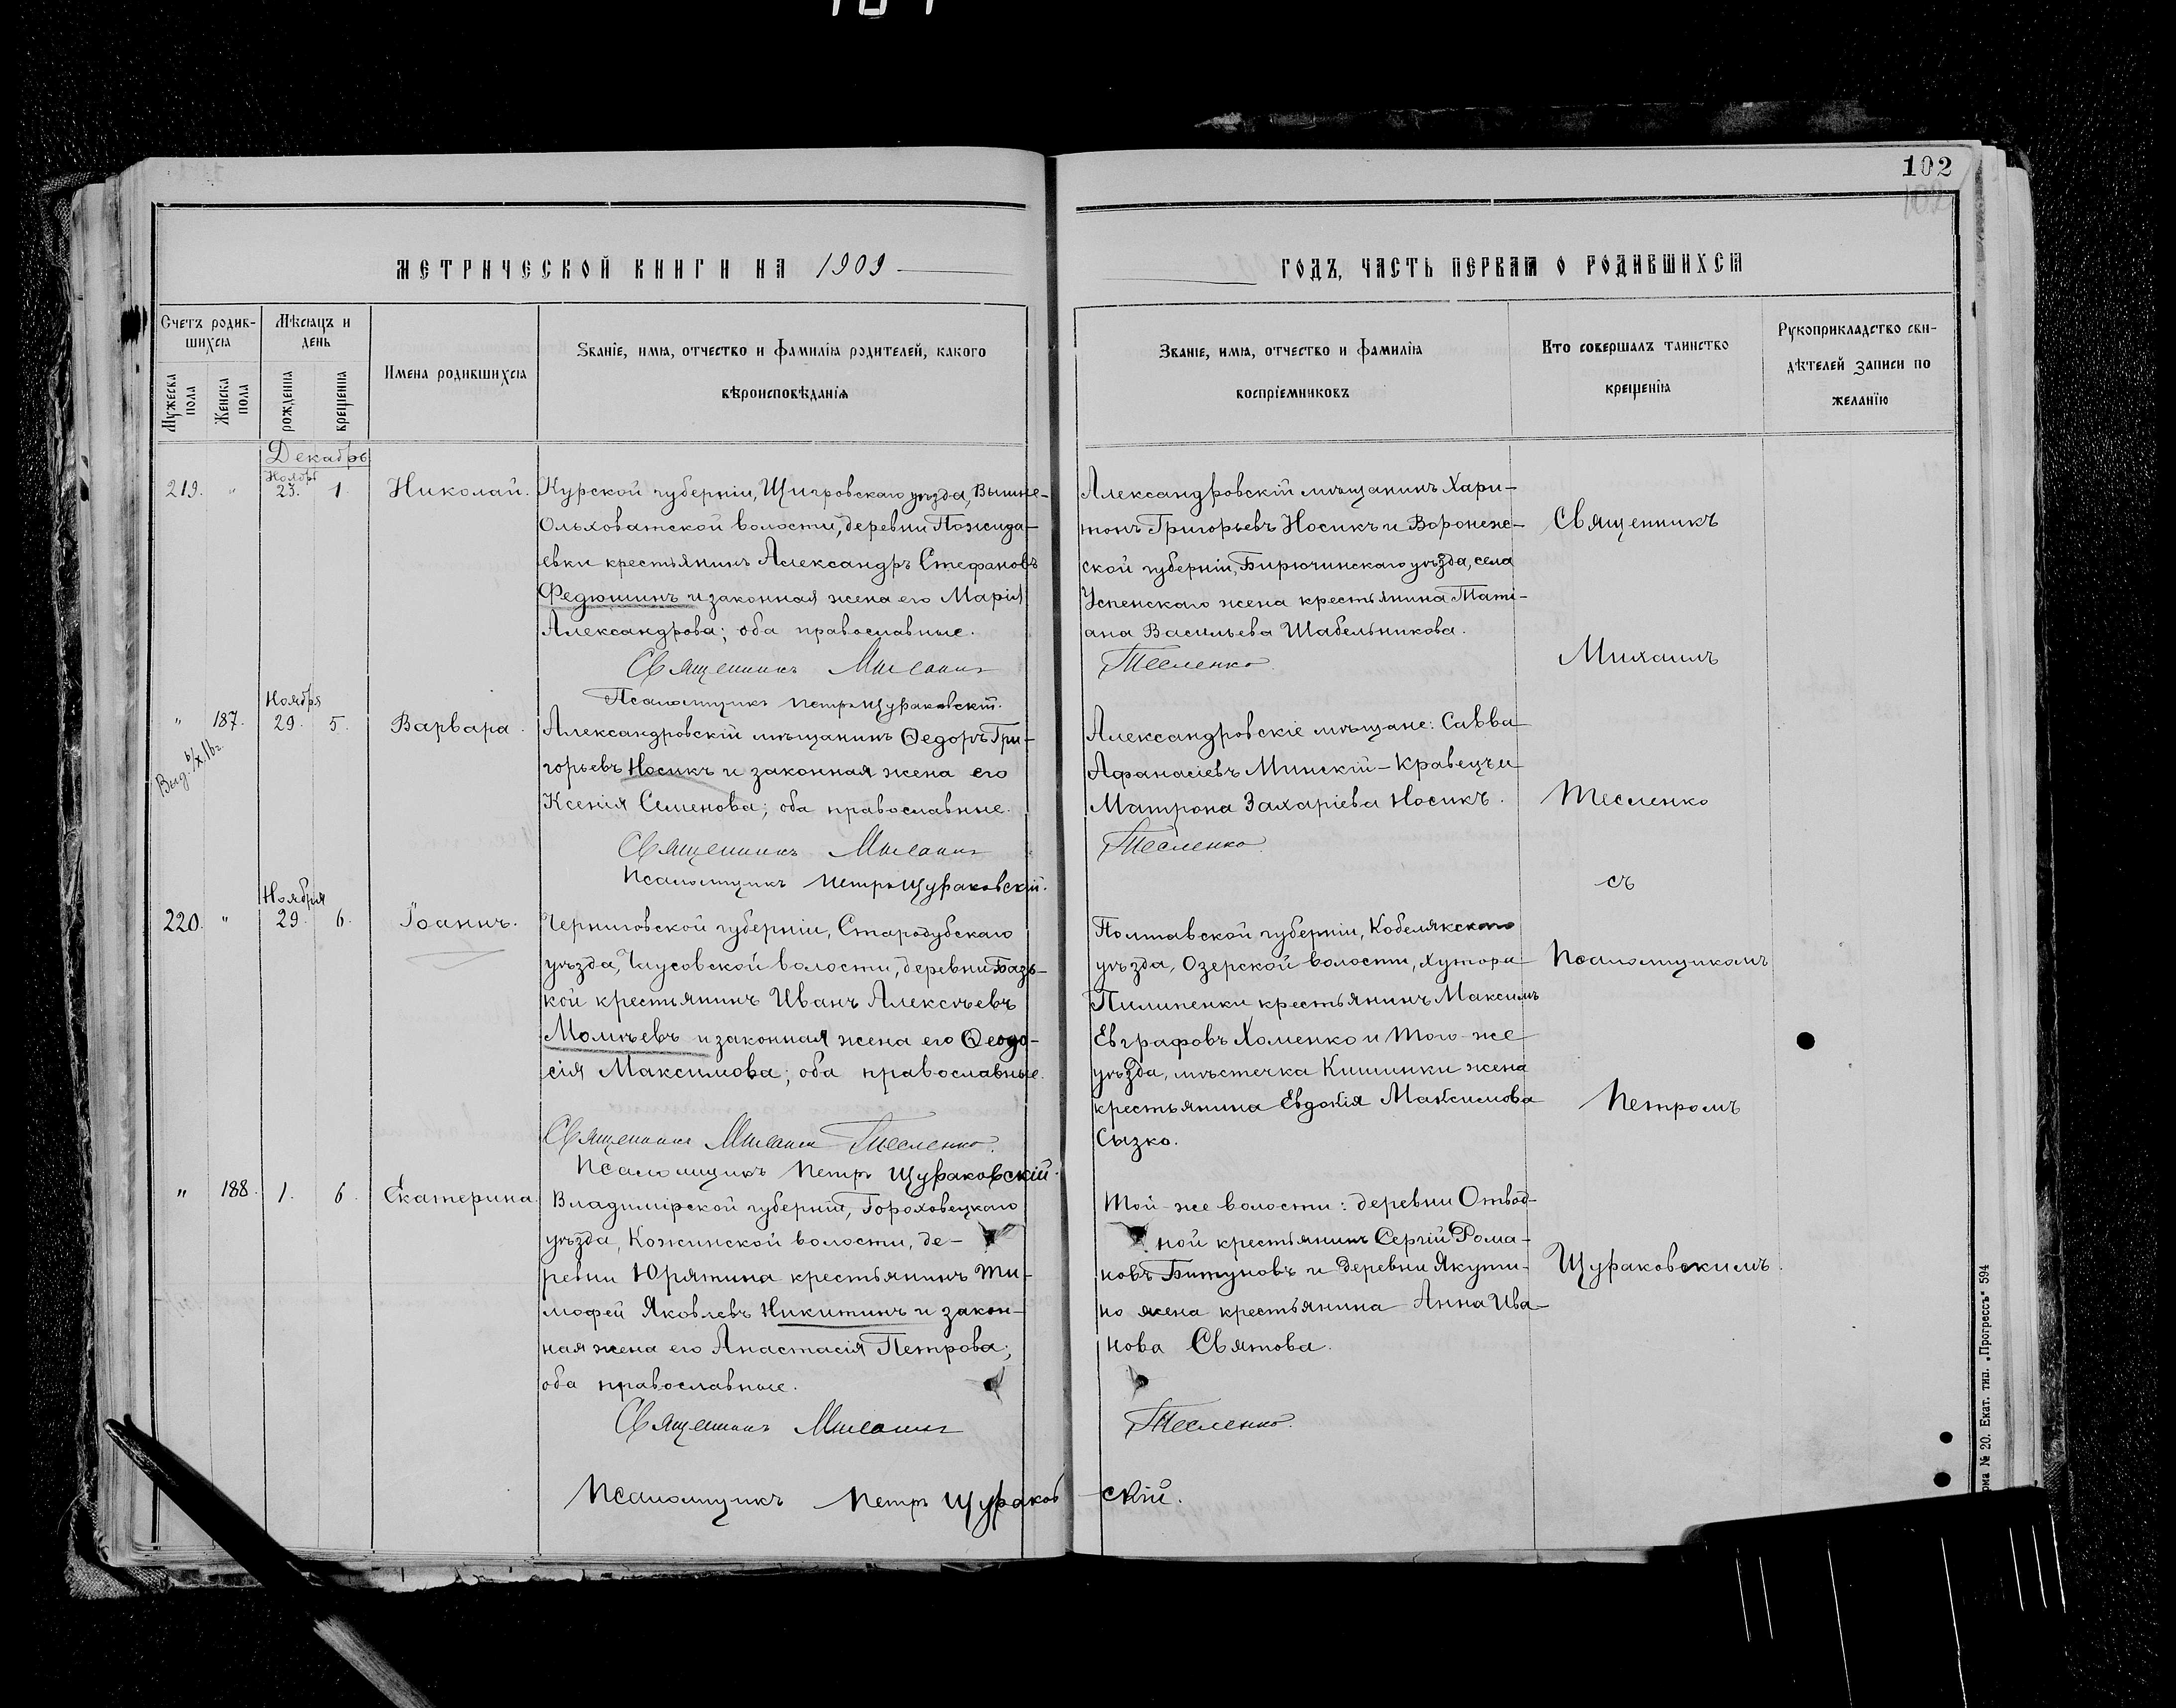 102
102
МЕТРИЧЕСКОЙ КНИГИ НА 1909
ГОДЪ, ЧАСТЬ ПЕРВАЯ О РОДИВШИХСЯ
Счетъ родив-
шихся
Мужеска пола
Женска пола
Мѣсяцъ и
день
рожденія
крещенія
Имена родившихся
Званіе, имя, отчество и фамилія родителей, какого
вѣроисповѣданія
Званіе, имя, отчество и фамилія
воспріемниковъ
Кто совершалъ таинство
крещенія
Рукоприкладство сви-
дѣтелей записи по
желанію
Декабрь
Ноября
219. " 23. 1. Николай.
Курской губерніи, Щигровскаго уѣзда, Вышне-
Ольховатской волости, деревни Пожида-
евки крестьянинъ Александръ Стефановъ
Федюшинъ и законная жена его Марія
Александрова; оба православные.
Священникъ Михаилъ
Псаломщикъ Петръ Щураковскій.
Александровскій мѣщанинъ Хари-
тонъ Григорьевъ Носикъ и Воронеж-
ской губерніи, Бирючинскаго уѣзда, села
Успенскаго жена крестьянина Таті-
ана Васильева Шабельникова.
Тесленко
Ноября
" 187. 29. 5. Варвара.
Выд.
Александровскій мѣщанинъ Ѳедоръ Гри-
горьевъ Носикъ и законная жена его
Ксенія Семенова; оба православные.
Священникъ Михаилъ
Псаломщикъ Петръ Щураковскій.
Александровскіе мѣщане: Савва
Афанасіевъ Минскій-Кравецъ и
Матрона Захаріева Носикъ.
Тесленко
Ноября
220. " 29. 6. Іоаннъ.
Черниговской губерніи, Стародубскаго
уѣзда, Чаусовской волости, деревни Базь-
кой крестьянинъ Иванъ Алексѣевъ
Момѣевъ и законная жена его Ѳеодо-
сія Максимова; оба православные.
Священникъ Михаилъ Тесленко.
Псаломщикъ Петръ Щураковскій.
Полтавской губерніи, Кобелякскаго
уѣзда, Озерской волости, хутора
Пилипенки крестьянинъ Максимъ
Евграфовъ Хоменко и того-же
уѣзда, мѣстечка Кишинки жена
крестьянина Евдокія Максимова
Сызко.
" 188. 1. 6. Екатерина.
Владимірской губерніи, Гороховецкаго
уѣзда, Кожинской волости, де-
ревни Юрятина крестьянинъ Ти-
мофей Яковлевъ Никитинъ и закон-
ная жена его Анастасія Петрова;
оба православные.
Священникъ Михаилъ
Той-же волости: деревни Отвод-
ной крестьянинъ Сергій Рома-
новъ Битуновъ и деревни Якути-
но жена крестьянина Анна Ива-
нова Святова.
Тесленко.
Псаломщикъ Петръ Щураковскій.
Священникъ
Михаилъ
Тесленко
съ
Псаломщикомъ
Петромъ
Щураковскимъ.
№ 20. Екат. тип. „Прогрессъ“ 594